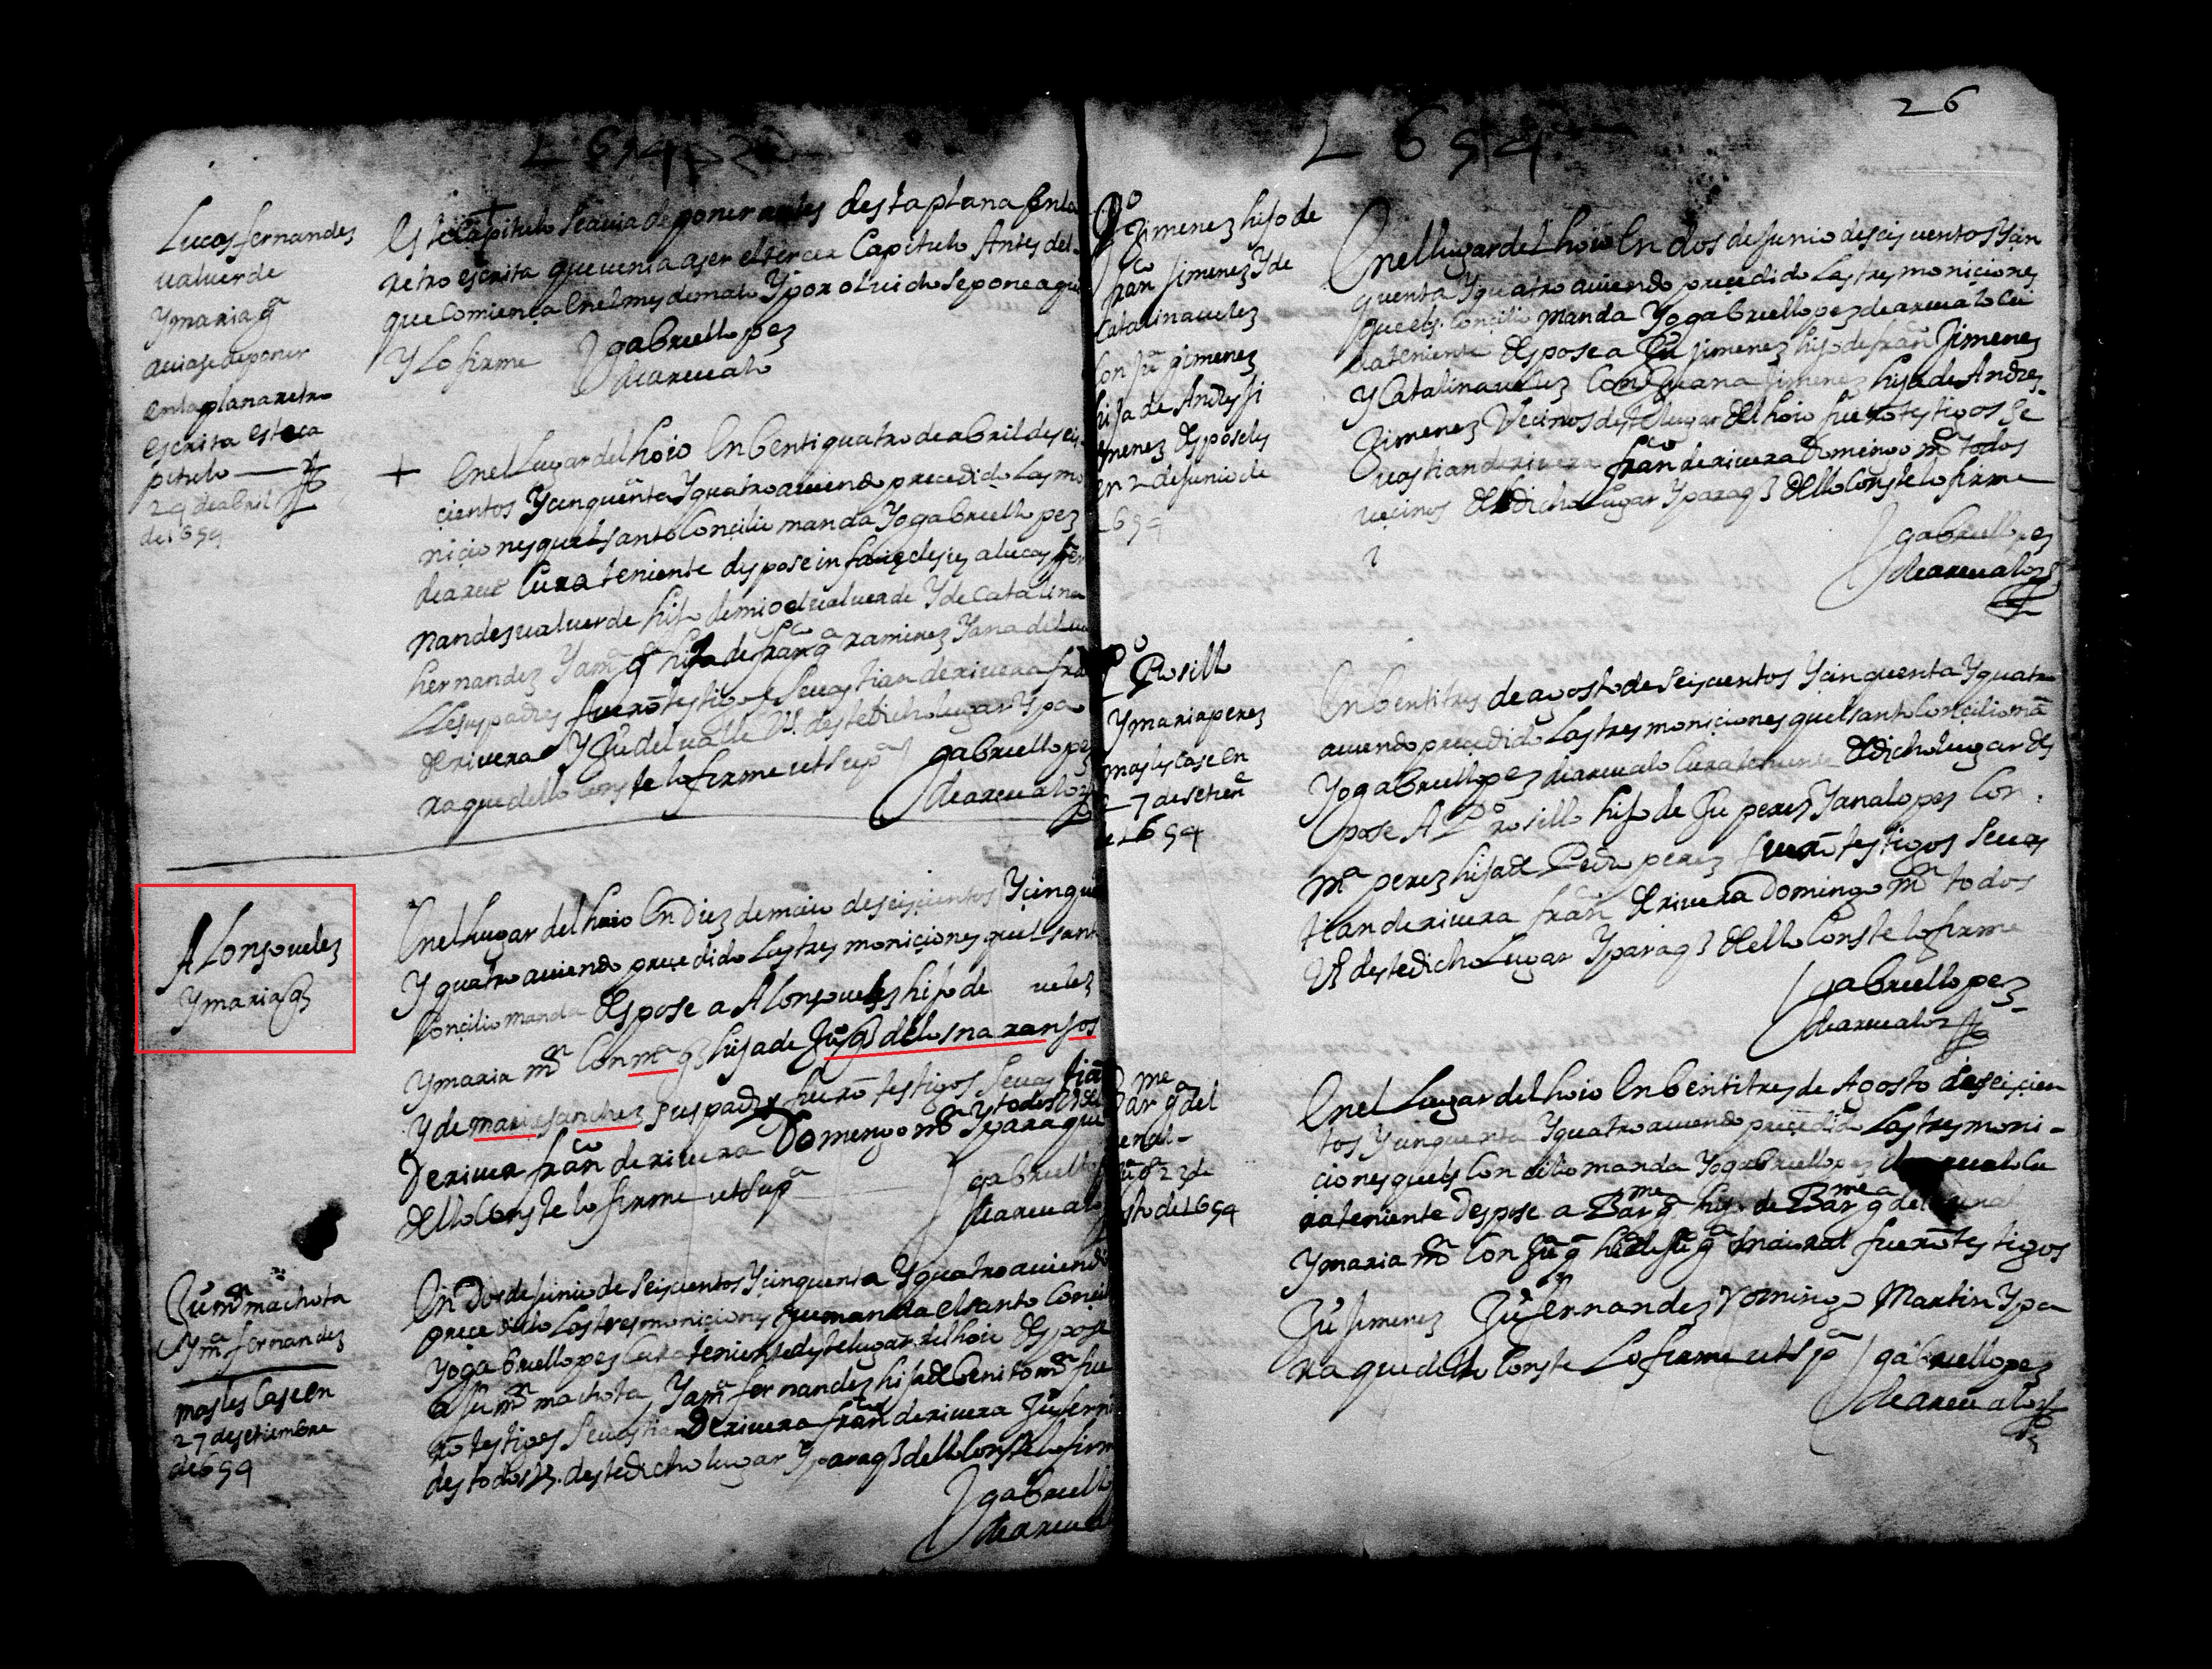 1654
Lucas fernandes
ualuerde
Y maria gª
auiase de poner
en la plana retro
escrita este ca
pitulo
24 de abril
de 1654
Este capitulo se auia de poner antes desta plana en la
retro escrita que uenia a ser el tercer Capitulo Antes del
que Comiença en el mes de maio Y por oluido se pone aqui
Y lo firme
gabriel lopez
de areualo
+ En el Lugar del hoio En benti quatro de abril de seis
çientos Y cinquenta Y quatro auiendo precedido Las mo
niçiones quel santo Conçilio manda Yo gabriel lopez
de areuº Cura teniente despose in façie eclesie a lucas fer
nandes ualuerde hijo de migel ualuerde Y de Catalina
hernandez Y a mª gª hija de franco gª ramirez Y ana del ua
lle sus padres fuerō testigos Seuastian de riuera fran
de riuera Y Juº del ualle Vs. deste dicho lugar Y pa
ra que dello Conste lo firme ut supª
gabriel lopez
de areualo
Alonso uelez
Y maria gz
En el lugar del hoio En Diez de maio de seisçientos Y çinquē
Y quatro auiendo precedido Las tres moniçiones quel santo
Conçilio manda despose a Alonso uelez hijo de uelez
Y maria mrn Con mª gz hija de Juº gz de los naranjos
Y de maria sanchez sus padres fuerō testigos Seuastian
De riuera franco de riuera Domingo mrn Y todos Vs del
Y para que
dello Conste lo firme ut supª
gabriel lopez
de areualo
Juº mrn machota
Y mª fernandez
mas les Case en
27 de setiembre
de 654
En Dos de junio de Seiscientos Y çinquenta Y quatro auiendo
precedido Las tres moniciones que manda el santo Conçilio
Yo gabriel lopez Cura teniente deste lugar del hoio despose
a Juº mrn machota Y a mª fernandez hija de benito mrn fue
rō testigos Seuastian De riuera franco de riuera Juº ferna
des todos Vs. deste dicho lugar Y para q dello Conste lo firme
gabriel lopez
de areualo
26
1654
Pº
Jimenez hijo de
franco Jimenez Y de
Catalina uelez
Con Juª gimenez
hija de Andres Ji
menez desposeles
en 2 de Junio de
1654
En el lugar del hoio En dos de Junio de seis cientos Y çin
quenta Y quatro auiendo precedido Las tres moniçiones
que el s. Conçilio manda Yo gabriel lopez de areualo cu
ra teniente despose a Juº Jimenez hijo de franco Jimenez
Y Catalina uelez Con Juana Jimenez hija de Andres
Jimenez Vecinos deste lugar del hoio fuerō testigos Se
uastian de riuera franco de riuera Domingo mrn todos
uecinos del dicho Lugar Y para q dello Conste lo firme
gabriel lopez
de areualo
Pº Rosillo
Y maria perez
mas les Case en
27 de setienē
de 1654
En benti tres de agosto de Seiscientos Y çinquenta Y quatro
auiendo precedido Las tres moniciones quel santo Conçilio mā
Yo gabriel lopez de areualo Cura teniente del dicho lugar des
pose A Pº rosillo hijo de Juº perez Y ana lopez Con
Mª perez hija de Pedro perez fuerō testigos Seuas
tian de riuera franco de riuera Domingo mrn todos
Vs deste dicho Lugar Y para q dello Conste lo firme
gabriel lopez
de areualo
Barme gª del
23 de
agosto de 1654
En el Lugar del hoio En benti tres de Agosto de seiscien
tos Y cinquenta Y quatro auiendo precedido Las tres moni-
çiones quel s Conçilio manda Yo gabriel lopez de areualo cu
ra teniente Despose a Barme gª hijo de Barme gª del
Y maria mrn Con Juª gª hija de Juº gª fueron testigos
Juº Jimenez Juº fernandez Domingo Martin Y pa
ra que dello Conste Lo firme ut supª
gabriel lopez
de areualo